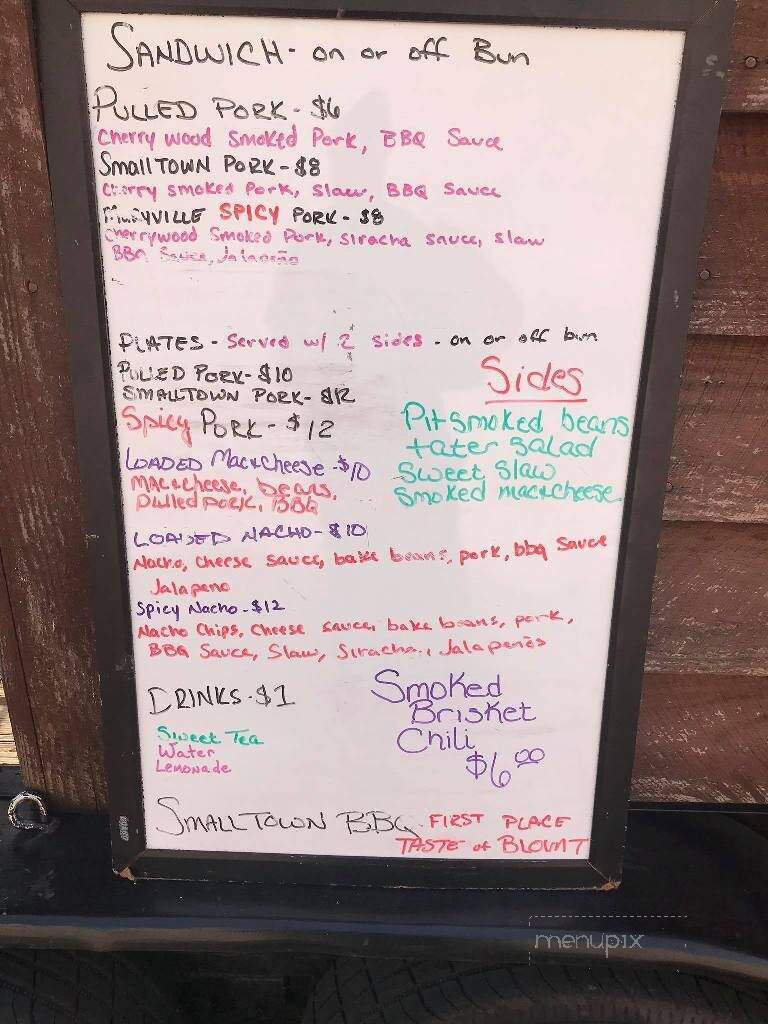 SANDWICH - on or off Bun
PULLED PORK - $6
Cherry wood Smoked Pork, BBQ Sauce
Small TOWN PORK - $8
Cherry smoked Pork, Slaw, BBQ Sauce
MaryVILLE SPICY PORK - $8
Cherrywood Smoked Pork, siracha sauce, slaw
BBQ Sauce, Jalapeño
PLATES - Served w/ 2 sides - on or off bun
PULLED PORK - $10
SMALLTOWN PORK - $12
Spicy PORK - $12
LOADED Mac+Cheese - $10
Mac+cheese, beans,
Pulled pork, BBQ
Sides
Pit smoked beans
tater salad
Sweet Slaw
Smoked mac+cheese
LOADED NACHO - $10
Nacho, cheese sauce, bake beans, pork, bbq sauce
Jalapeno
Spicy Nacho - $12
Nacho Chips, Cheese sauce, bake beans, pork,
BBQ Sauce, Slaw, Siracha, Jalapenos
DRINKS - $1
Sweet Tea
Water
Lemonade
Smoked
Brisket
Chili
$6.00
SMALL TOWN BBQ FIRST PLACE
TASTE of BLOUNT
menupix